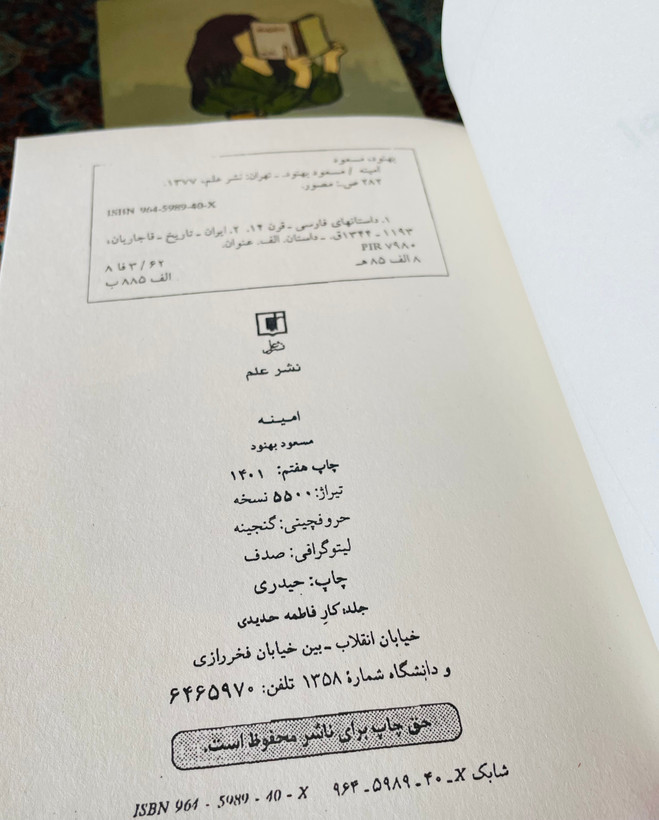 بهنود، مسعود
امینه / مسعود بهنود. ـ تهران: نشر علم، ۱۳۷۷.
۲۸۲ ص.: مصور.
ISBN 964-5989-40-X
۱. داستانهای فارسی ـ قرن ۱۴. ۲. ایران ـ تاریخ ـ قاجاریان،
۱۱۹۳ ـ ۱۳۴۴ق. ـ داستان. الف. عنوان.
PIR ۷۹۸۰
۸ الف ۸۵ هـ
۳/۶۲ فا ۸
الف ۸۸۵ ب
علم
نشر علم
امینه
مسعود بهنود
چاپ هفتم: ۱۴۰۱
تیراژ: ۵۵۰۰ نسخه
حروفچینی: گنجینه
لیتوگرافی: صدف
چاپ: حیدری
جلد: کار فاطمه حدیدی
خیابان انقلاب ـ بین خیابان فخررازی
و دانشگاه شمارهٔ ۱۳۵۸ تلفن: ۶۴۶۵۹۷۰
حق چاپ برای ناشر محفوظ است.
شابک X ـ ۴۰ ـ ۵۹۸۹ ـ ۹۶۴ ISBN 964 - 5989 - 40 - X